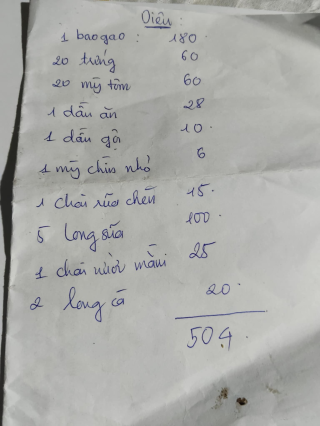 Diệu :
1 bao gạo : 180.
20 trứng 60
20 mỳ tôm 60
1 dầu ăn 28
1 dầu gội 10.
1 mỹ chín nhỏ 6
1 chai rửa chén 15.
5 long sữa 100.
1 chai nước mắm 25
2 long cá 20.
504